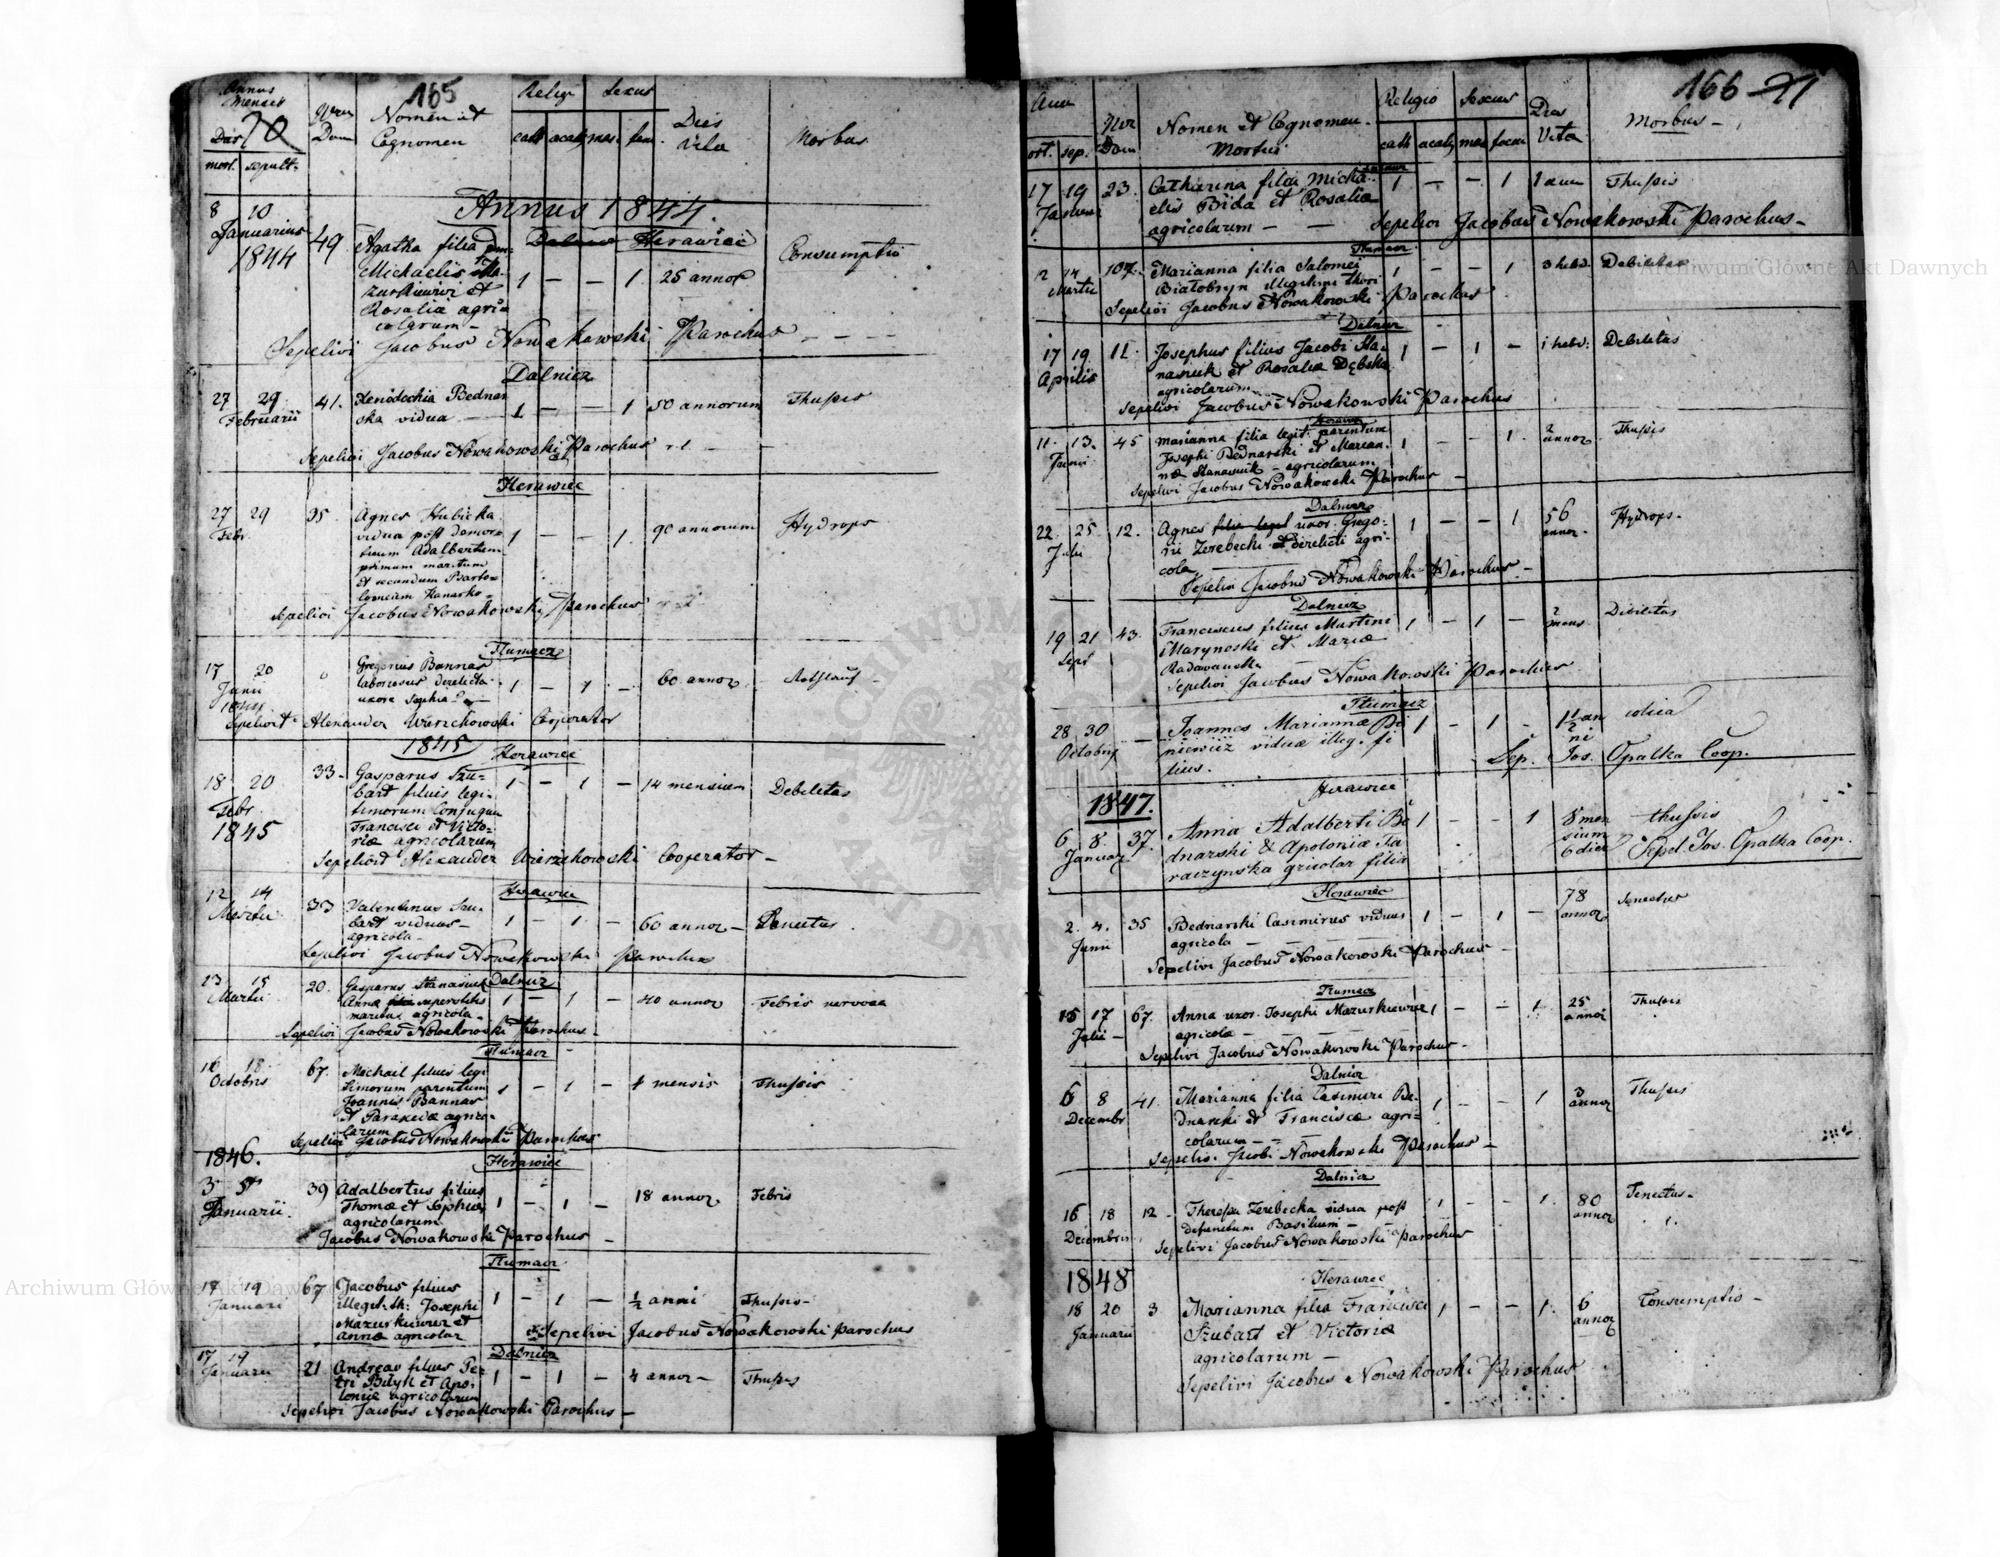 Annus
Mensis
Dies
mort. sepult.
70
165
Nrus
Dom
Nomen et
Cognomen
Religi
cath acath
Sexus
mas. fem.
Dies
Vita
Morbus
Annus 1844.
8 10
Januarius
1844
49
Agatha filia
Michaelis Ma-
zurkiewicz et
Rosaliæ agri-
colarum
Herawiec
1 — — 1. 25 annor
Consumptio
Sepelivi Jacobus Nowakowski Parochus
Dalnicz
27 29
Februarii
41.
Xenodochia Bednar
ska vidua
1 — — 1 50 annorum
Thussis
Sepelivi Jacobus Nowakowski Parochus
Herawiec
27 29
Febr.
35.
Agnes Hubicka
vidua post demor-
tuum Adalbertum
primum maritum
et secundum Barto-
lomeum
1 — — 1. 90 annorum
Hydrops
Sepelivi Jacobus Nowakowski Parochus
Tłumacz
17 20
Junii
Gregorius Bannas
laboriosus derelicta
uxore Sophia
1 — 1 — 60 annor
Sepelivit Alexander Wierzchowski Cooperator
1845 Herawiec
18 20
Febr.
1845
33.
Gasparus Szu-
bart filius legi-
timorum Conjugum
Francisci et Victo-
riæ agricolarum
1 — 1 — 14 mensium
Debilitas
Sepelivit Alexander Wierzchowski Cooperator
Herawiec
12 14
Martii
33
Valentinus Szu-
bart viduus
agricola
1 — 1 — 60 annor
Senectus
Sepelivi Jacobus Nowakowski Parochus
Dalnicz
13 15
Martii
20.
Gasparus Stanasiuk
Anna superstitis
maritus agricola
1 — 1 — 40 annor
Febris nervosa
Sepelivi Jacobus Nowakowski Parochus
Tłumacz
16 18
Octobris
67.
Michael filius legi
timorum parentum
Joannis Bannas
et Paraxedæ agrico-
larum
1 — 1 — 1 mensis
Thussis
Sepelivi Jacobus Nowakowski Parochus
1846.
Herawiec
3 5
Januarii.
39
Adalbertus filius
Thomæ et Sophiæ
agricolarum
1 — 1 — 18 annor
Febris
Jacobus Nowakowski Parochus
Tłumacz
17 19
Januarii
67
Jacobus filius
illegit. th: Josephi
Mazurkiewicz et
Annæ agricolar
1 — 1 — ½ anni
Thussis
Sepelivi Jacobus Nowakowski Parochus
Dalnicz
17 19
Januarii
21
Andreas filius Pe-
tri Bdyk et Apo-
loniæ agricolarum
1 — 1 — 4 annor
Thussis
Sepelivi Jacobus Nowakowski Parochus
166 71
Ann
ort. sep.
Ner
Dom
Nomen et Cognomen
Mortui
Religio
cath acath
Sexus
mas foem
Dies
Vita
Morbus
17 19
23.
Catharina filia Micha-
elis Bida et Rosaliæ
agricolarum
1 — — 1 1 ann
Thussis
Sepelivi Jacobus Nowakowski Parochus
Tłumacz
12 14
Martii
107.
Marianna filia Salomei
Białobryn illegitimi thori
1 — — 1 3 hebd.
Debilitas
Sepelivi Jacobus Nowakowski Parochus
Dalnicz
17 19
Aprilis
11.
Josephus filius Jacobi Sta-
nasiuk et Rosaliæ Dębska
agricolarum
1 — 1 — 1 hebd.
Debilitas
Sepelivi Jacobus Nowakowski Parochus
Herawiec
11. 13.
Junii
45
Marianna filia legit. parentum
Josephi Bednarski et Marian-
næ Stanasiuk agricolarum
1 — — 1. 2 annor
Thussis
Sepelivi Jacobus Nowakowski Parochus
Dalnicz
22 25
Julii
12.
Agnes filia legit uxor Grego-
rii Zerebecki derelicti agri-
cola
1 — — 1 56 annor
Hydrops
Sepelivi Jacobus Nowakowski Parochus
Dalnicz
19 21
Sept
43.
Franciscus filius Martini
Marynoski et Mariæ
Radawanska
1 — 1 — 2 mens
Debilitas
Sepelivi Jacobus Nowakowski Parochus
Tłumacz
28 30
Octobris
Joannes Mariannæ
viduæ illeg. fi
lius.
1 — 1 — 1½ an
ni
colica
Sep. Jos. Opalka Coop.
1847.
Herawiec
6 8.
Januar
37.
Anna Adalberti Be
dnarski & Apoloniæ Ta
raczynska gricolar filia
1 — — 1 8 men
sium
6 dier
thussis
Sepel. Jos. Opalka Coop.
Herawiec
2. 4.
Junii
35
Bednarski Casimirus viduus
agricola
1 — 1 — 78 annor
Senectus
Sepelivi Jacobus Nowakowski Parochus
Tłumacz
15 17
Julii
67.
Anna uxor Josephi Mazurkiewicz
agricola
1 — — 1. 25 annor
Thussis
Sepelivi Jacobus Nowakowski Parochus
Dalnicz
6 8
Decembr
41.
Marianna filia Casimiri Be-
dnarski et Franciscæ agri-
colarum
1 — — 1 3 annor
Thussis
Sepelivi Jacobi Nowakowski Parochus
Dalnicz
16 18
Decembris
12
Theressa Zerebecka vidua post
defunctum Basilium
1 — — 1. 80 annor
Senectus
Sepelivi Jacobus Nowakowski Parochus
1848
Herawiec
18 20
Januarii
3
Marianna filia Francisci
Szubart et Victoriæ
agricolarum
1 — — 1. 6 annor
Consumptio
Sepelivi Jacobus Nowakowski Parochus
Archiwum Główne Akt Dawnych
Archiwum Główne Akt Dawnych